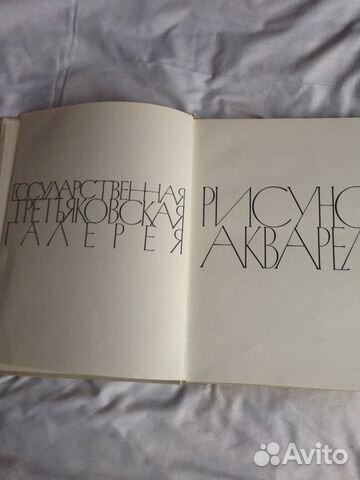 ГОСУДАРСТВЕННАЯ
ТРЕТЬЯКОВСКАЯ
ГАЛЕРЕЯ
РИСУНО
АКВАРЕЛ
Avito